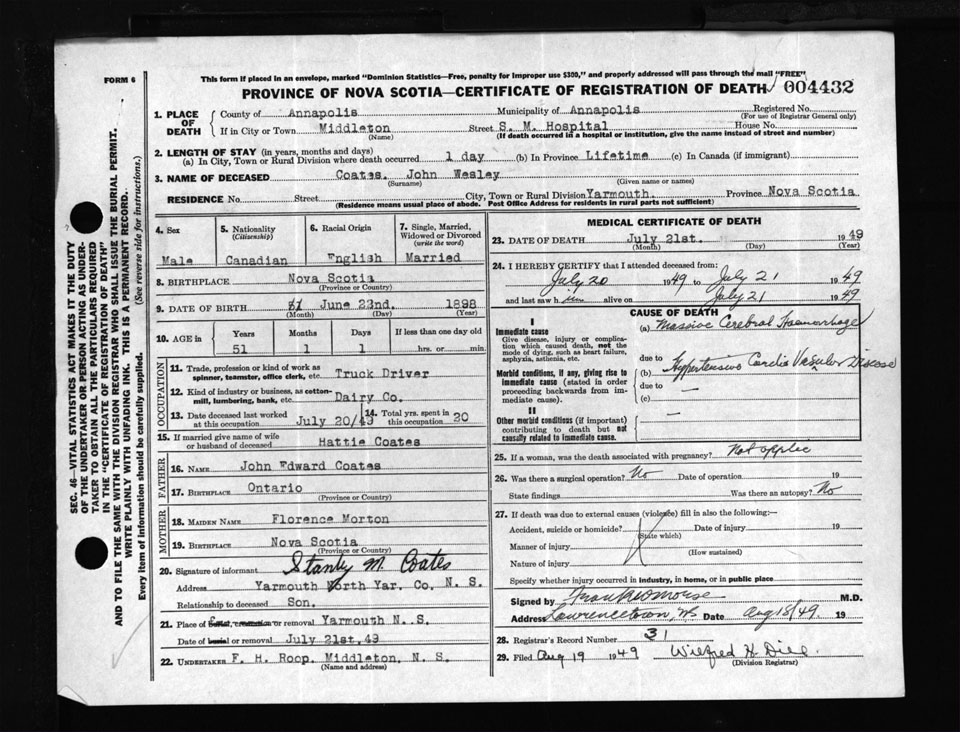 This form if placed in an envelope, marked "Dominion Statistics—Free, penalty for improper use $300," and properly addressed will pass through the mail "FREE"
FORM 6
PROVINCE OF NOVA SCOTIA—CERTIFICATE OF REGISTRATION OF DEATH 004432
SEC. 46—VITAL STATISTICS ACT MAKES IT THE DUTY
OF THE UNDERTAKER OR PERSON ACTING AS UNDER-
TAKER TO OBTAIN ALL THE PARTICULARS REQUIRED
IN THE "CERTIFICATE OF REGISTRATION OF DEATH"
AND TO FILE THE SAME WITH THE DIVISION REGISTRAR WHO SHALL ISSUE THE BURIAL PERMIT.
WRITE PLAINLY WITH UNFADING INK. THIS IS A PERMANENT RECORD.
Every item of information should be carefully supplied. (See reverse side for instructions.)
1. PLACE OF DEATH
County of Annapolis Municipality of Annapolis Registered No.
(For use of Registrar General only)
If in City or Town Middleton Street S. M. Hospital House No.
(Name) (If death occurred in a hospital or institution, give the name instead of street and number)
2. LENGTH OF STAY (in years, months and days)
(a) In City, Town or Rural Division where death occurred 1 day (b) In Province Lifetime (c) In Canada (if immigrant)
3. NAME OF DECEASED Coates. John Wesley
(Surname) (Given name or names)
RESIDENCE No. Street City, Town or Rural Division Yarmouth. Province Nova Scotia
(Residence means usual place of abode. Post Office Address for residents in rural parts not sufficient)
4. Sex 5. Nationality (Citizenship) 6. Racial Origin 7. Single, Married, Widowed or Divorced (write the word)
Male Canadian English Married
8. BIRTHPLACE Nova Scotia
(Province or Country)
9. DATE OF BIRTH June 22nd. 1898
(Month) (Day) (Year)
10. AGE IN Years Months Days If less than one day old
51 1 1 hrs. or min.
OCCUPATION
11. Trade, profession or kind of work as
spinner, teamster, office clerk, etc. Truck Driver
12. Kind of industry or business, as cotton-
mill, lumbering, bank, etc. Dairy Co.
13. Date deceased last worked at this occupation July 20/49 14. Total yrs. spent in this occupation 20
15. If married give name of wife
or husband of deceased Hattie Coates
FATHER
16. NAME John Edward Coates
17. BIRTHPLACE Ontario
(Province or Country)
MOTHER
18. MAIDEN NAME Florence Morton
19. BIRTHPLACE Nova Scotia
(Province or Country)
20. Signature of informant Stanly M. Coates
Address Yarmouth North Yar. Co. N. S.
Relationship to deceased Son.
21. Place of burial, cremation or removal Yarmouth N. S.
Date of burial or removal July 21st. 49
22. UNDERTAKER F. H. Roop. Middleton, N. S.
(Name and address)
MEDICAL CERTIFICATE OF DEATH
23. DATE OF DEATH July 21st. 1949
(Month) (Day) (Year)
24. I HEREBY CERTIFY that I attended deceased from:
July 20 1949 to July 21 1949
and last saw him alive on July 21 1949
CAUSE OF DEATH
I
Immediate cause
Give disease, injury or complica-
tion which caused death, not the
mode of dying, such as heart failure,
asphyxia, asthenia, etc.
(a) Massive Cerebral Haemorrhage
due to
Morbid conditions, if any, giving rise to
immediate cause (stated in order
proceeding backwards from im-
mediate cause).
(b) Hypertensive Cardio Vascular Disease
due to —
(c)
II
Other morbid conditions (if important)
contributing to death but not
causally related to immediate cause.
—
25. If a woman, was the death associated with pregnancy? Not applic
26. Was there a surgical operation? No Date of operation 19
State findings Was there an autopsy? No
27. If death was due to external causes (violence) fill in also the following:—
Accident, suicide or homicide? Date of injury 19
(State which)
Manner of injury
(How sustained)
Nature of injury
Specify whether injury occurred in industry, in home, or in public place
Signed by M.D.
Address Lawrencetown, NS Date Aug 18/49 19
28. Registrar's Record Number 31
29. Filed Aug 19 1949 Wilfred H
(Division Registrar)